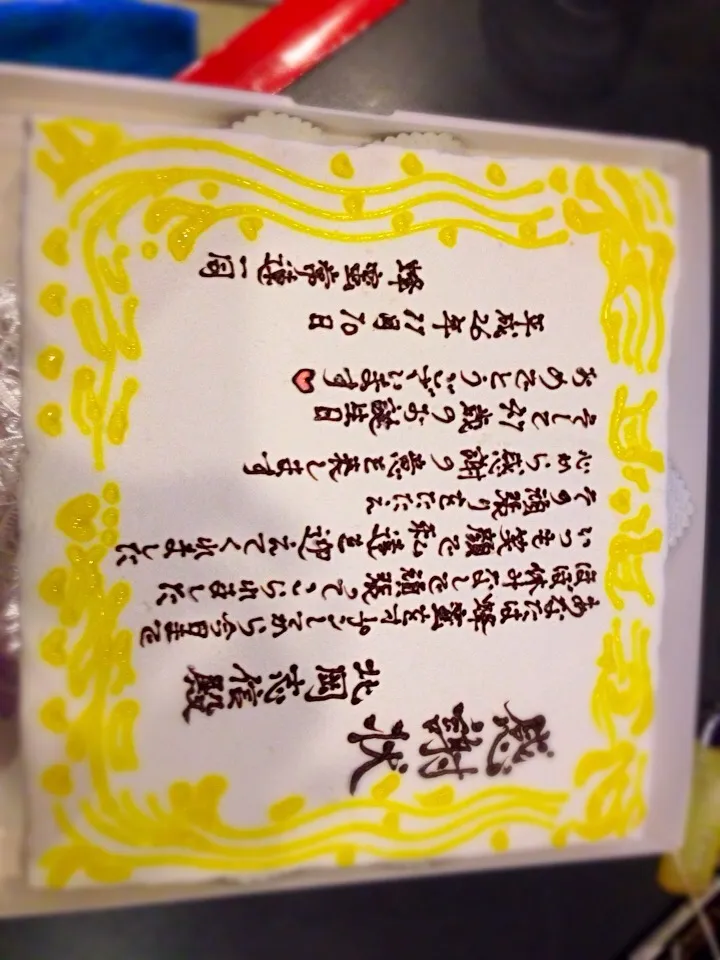 感謝状
北岡志信殿
あなたは蜂蜜をオープンしてから今日まで
ほぼ休みなしで頑張ってこられました
いつも笑顔で私達を迎えてくれました
その頑張りをたたえ
心から感謝の意を表します
そして47歳のお誕生日
おめでとうございます
平成26年11月10日
蜂蜜常連一同